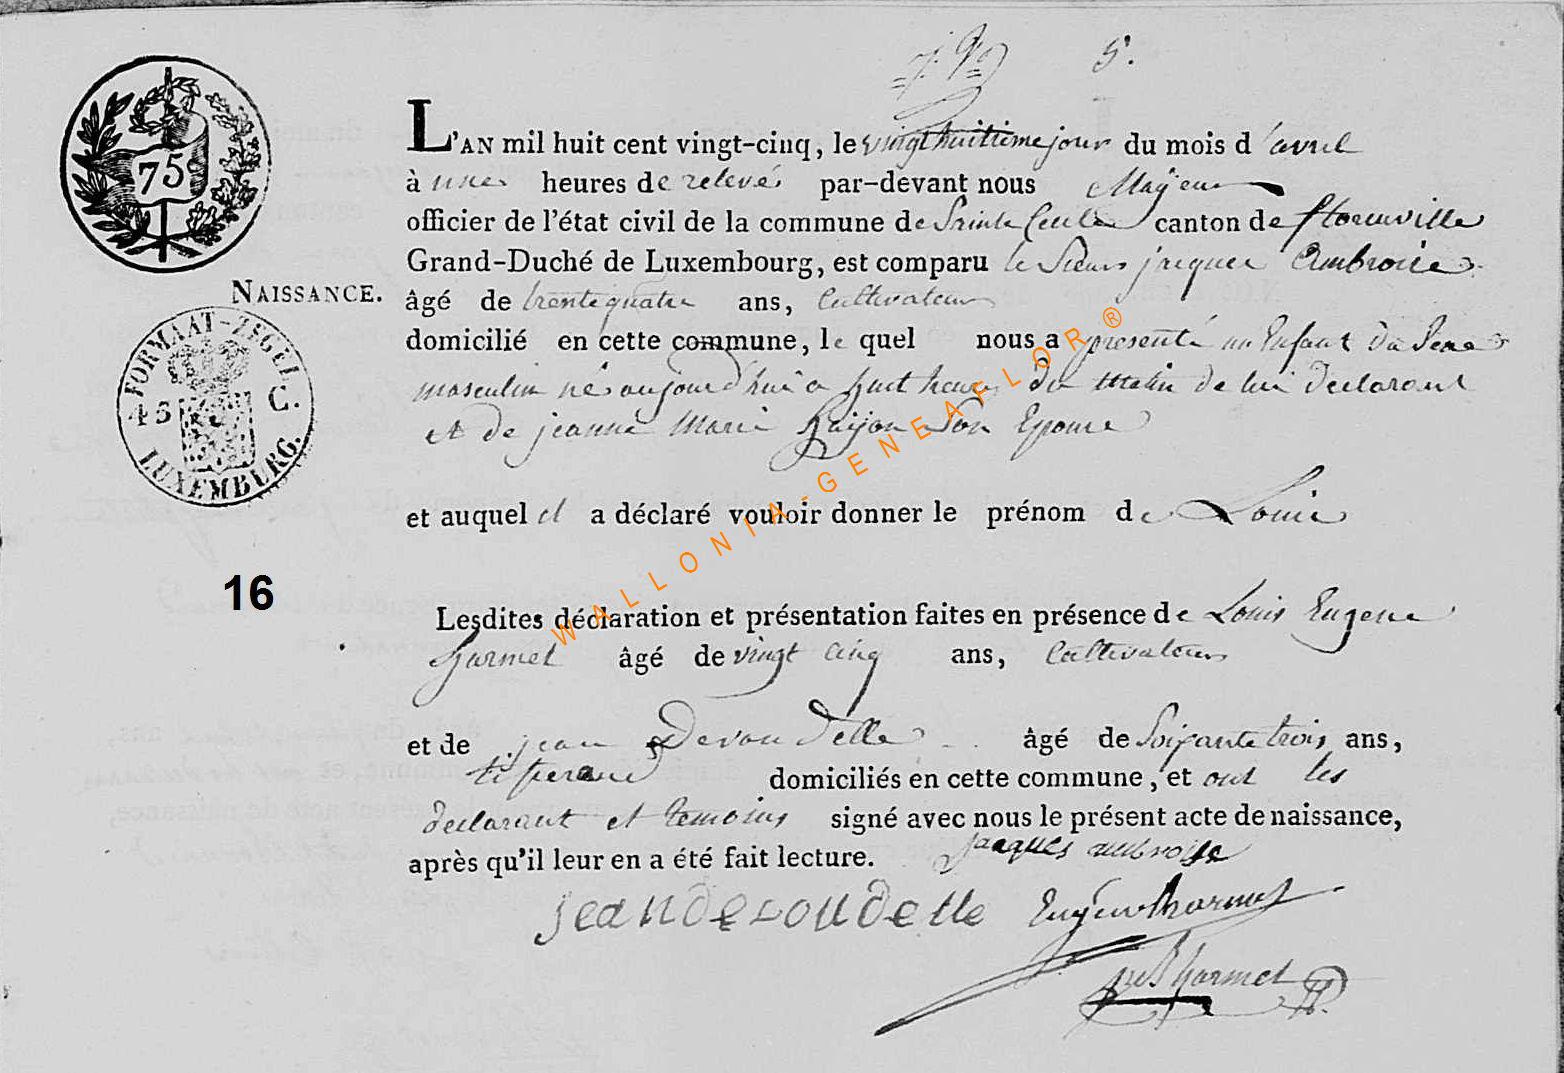 5.
75
L'AN mil huit cent vingt-cinq, le vingt huittieme jour du mois d'avril
à une heures de relevés par-devant nous Mayeur
officier de l'état civil de la commune de Sainte Cecile canton de florenville
Grand-Duché de Luxembourg, est comparu le Sieur jacques Ambroise
NAISSANCE.
âgé de trente quatre ans, Cultivateur
domicilié en cette commune, le quel nous a presenté un Enfant du Sexe
masculin né aujourd'hui a huit heures du Matin de lui declarant
et de jeanne Marie son Epouse
FORMAAT-ZEGEL
45 C.
LUXEMBURG.
et auquel il a déclaré vouloir donner le prénom de Louis
16
Lesdites déclaration et présentation faites en présence de Louis Eugene
harmel âgé de vingt cinq ans, Cultivateur
et de jean âgé de Soixante trois ans,
tisserand domiciliés en cette commune, et ont les
declarant et temoins signé avec nous le présent acte de naissance,
après qu'il leur en a été fait lecture. jacques ambroise
jean
harmel
WALLONIA-GENEAFLOR®